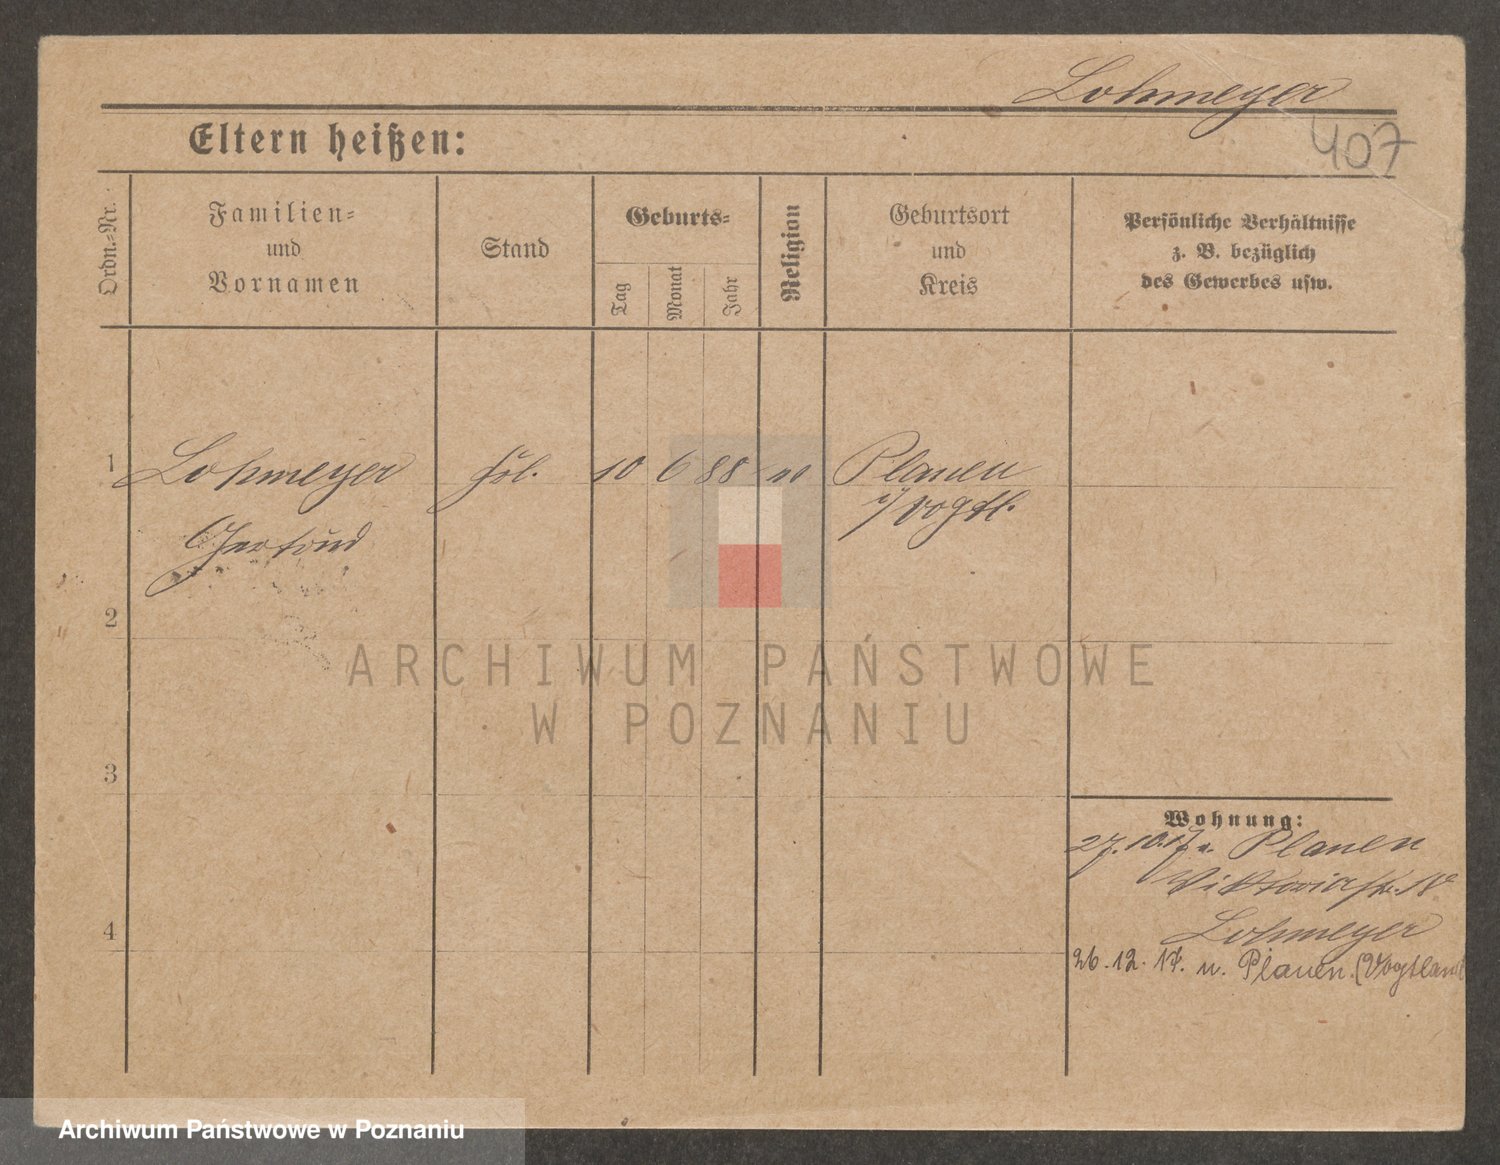 Lohmeyer
407
Eltern heißen:
Ordn.-Nr.
Familien-
und
Vornamen
Stand
Geburts-
Tag
Monat
Jahr
Religion
Geburtsort
und
Kreis
Persönliche Verhältnisse
z. B. bezüglich
des Gewerbes usw.
1 Lohmeyer 10 6 88 Plauen
i/Vogtl.
Gertrud
2
ARCHIWUM PAŃSTWOWE
W POZNANIU
3
Wohnung:
27.10.17 n. Plauen
Viktoriastr. 18
4
Lohmeyer
26.12.17. n. Plauen. (Vogtland
Archiwum Państwowe w Poznaniu